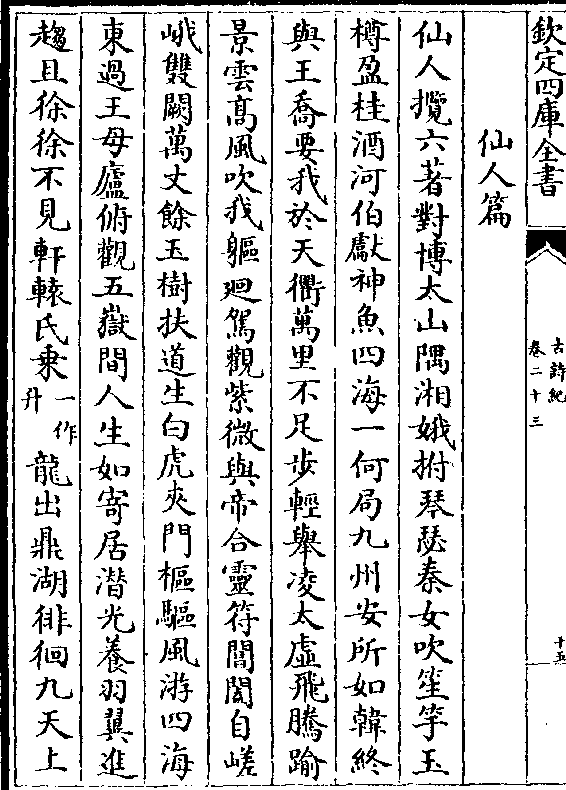 欽定四庫全書
古詩紀
卷二十三
十五
仙人篇
仙人攬六著對博太山隅湘娥拊琴瑟秦女吹笙竽玉
樽盈桂酒河伯獻神魚四海一何局九州安所如韓終
與王喬要我於天衢萬里不足步輕舉凌太虛飛騰踰
景雲高風吹我軀廻駕觀紫微與帝合靈符閶闔自嵯
峨雙闕萬丈餘玉樹扶道生白虎夾門樞驅風游四海
東過王母廬俯觀五嶽間人生如寄居潛光養羽翼進
趨且徐徐不見軒轅氏乗一作升龍出鼎湖徘徊九天上